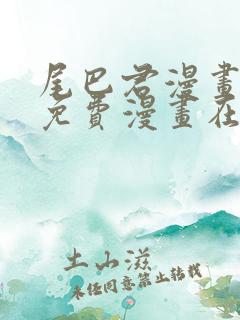 尾巴君漫畫
免費漫畫在
土山滋
未经同意禁止转载